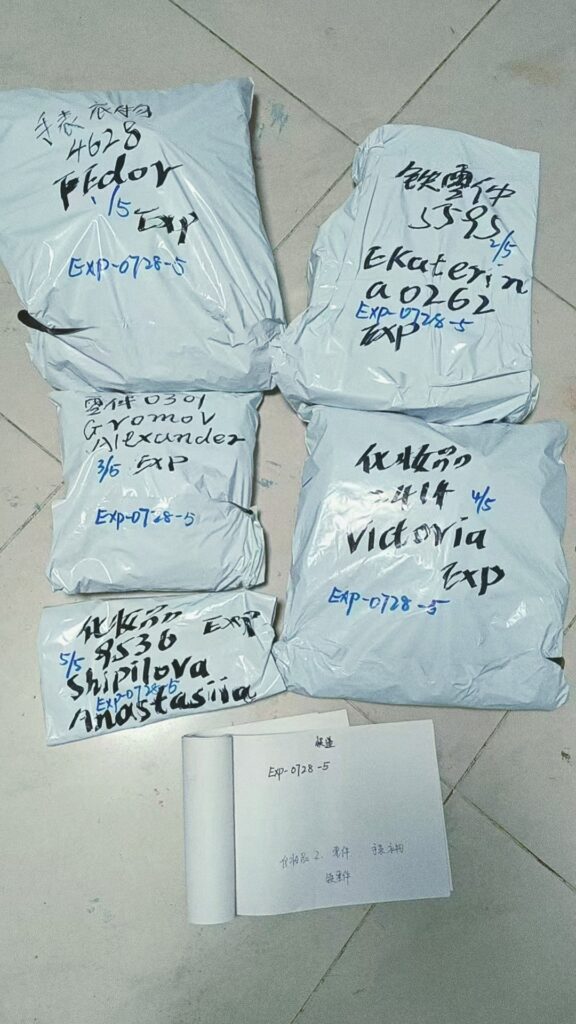 手表 衣物
4628
FEdor
1/5
Exp
Exp-0728-5
铁零件
5595
2/5
EKaterin
a0262
Exp-0728-5
Exp
零件0301
Gromov
Alexander
3/5 Exp
Exp-0728-5
化妆品
2414
4/5
Victoria
Exp
Exp-0728-5
化妆品
5/5
9536 Exp
Shipilova
Exp-0728-5
Anastasiia
快递
Exp-0728-5
化妆品2. 零件. 手表衣物
铁零件